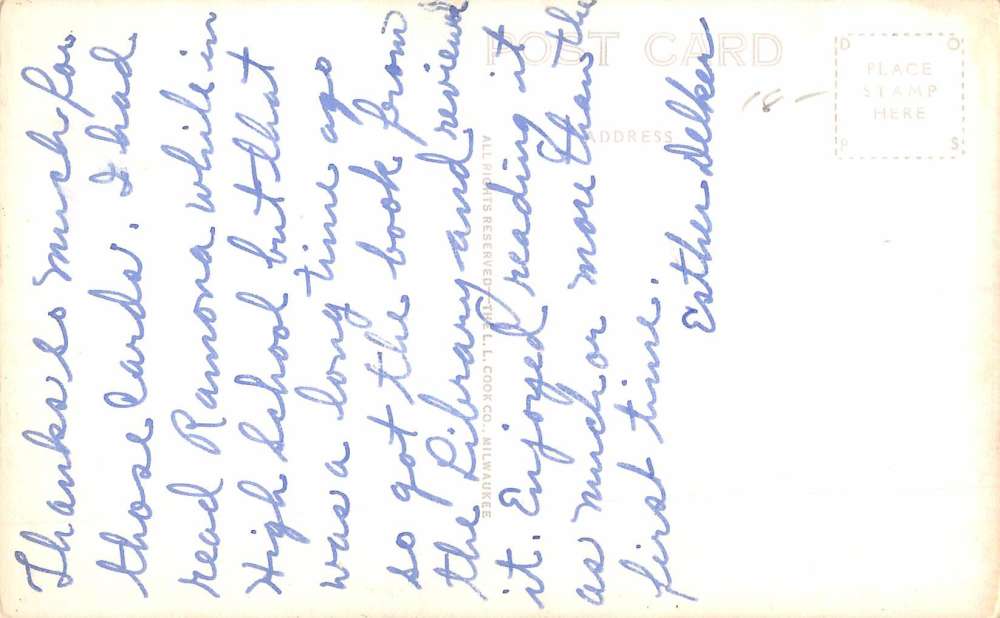 Thanks so much for
those cards. I had
read Ramona while in
High School but that
was a long time ago
so got the book from
the Library and reviewed
it. Enjoyed reading it
as much or more than the
first time.
Esther Delker
POST CARD
ADDRESS
18-
PLACE
STAMP
HERE
D O
P S
ALL RIGHTS RESERVED—THE L. L. COOK CO., MILWAUKEE